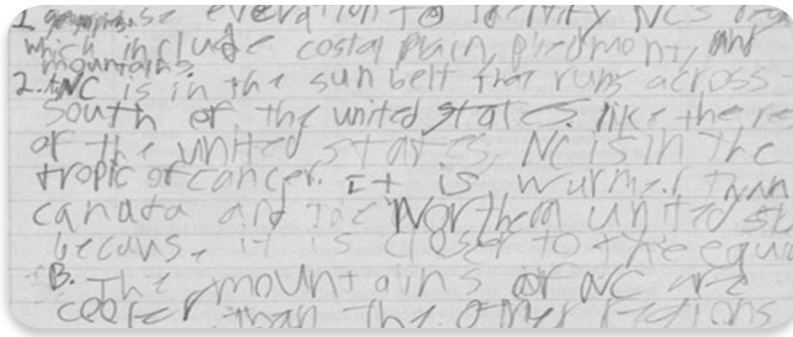 1 use evevation to identify NCs
which include costal plain, piedmont, and
mountains.
2. NC is in the sun belt that runs across
south of the united states. like the
of the united states, NC is in the
tropic of cancer. It is wurmer than
canada and the Northern united
becaus e it is closer to the
B. The mountains of NC are
cooler than the other regions